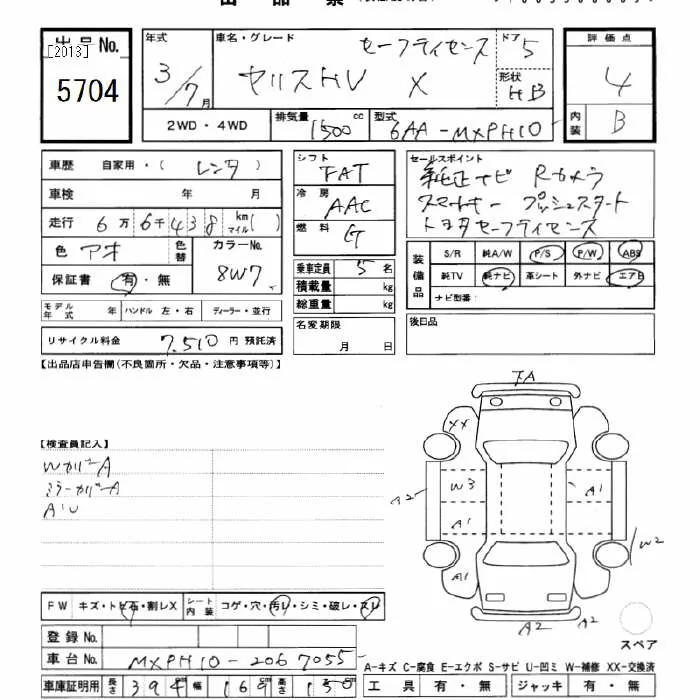 出品No. [2013]
5704
年式
3/7月
車名・グレード セーフティセンス
ヤリスHV X
ドア 5
形状 HB
評価点
4
内装 B
2WD・4WD
排気量 1500 cc
型式 6AA-MXPH10
車歴 自家用・( レンタ )
車検 年 月
走行 6万6千438 km マイル( )
色 アオ 色替 カラーNo. 8W7
保証書 有・無
シフト FAT
冷房 AAC
燃料 G
乗車定員 5名
積載量 kg
総重量 kg
セールスポイント
純正ナビ Rカメラ
スマートキー プッシュスタート
トヨタセーフティセンス
装備品
S/R 純A/W P/S P/W ABS
純TV 純ナビ 革シート 外ナビ エアB
ナビ型番:
モデル年式 年 ハンドル 左・右 ディーラー・並行
名変期限
月 日
後日品
リサイクル料金 7,510 円 預託済
【出品店申告欄(不良箇所・欠品・注意事項等)】
FA
XX
【検査員記入】
Wカバー A
ミラーカバー A
A・U
A2 W3 A1
A1
W2
A1
A2 A2
FW キズ・トビ石・割レX シート内装 コゲ・穴・汚レ・シミ・破レ・スレ
スペア
登録No.
車台No. MXPH10-2067055
A-キズ C-腐食 E-エクボ S-サビ U-凹ミ W-補修 XX-交換済
車庫証明用 長さ 394 cm 幅 169 cm 高さ 150 cm
工具 有・無 ジャッキ 有・無